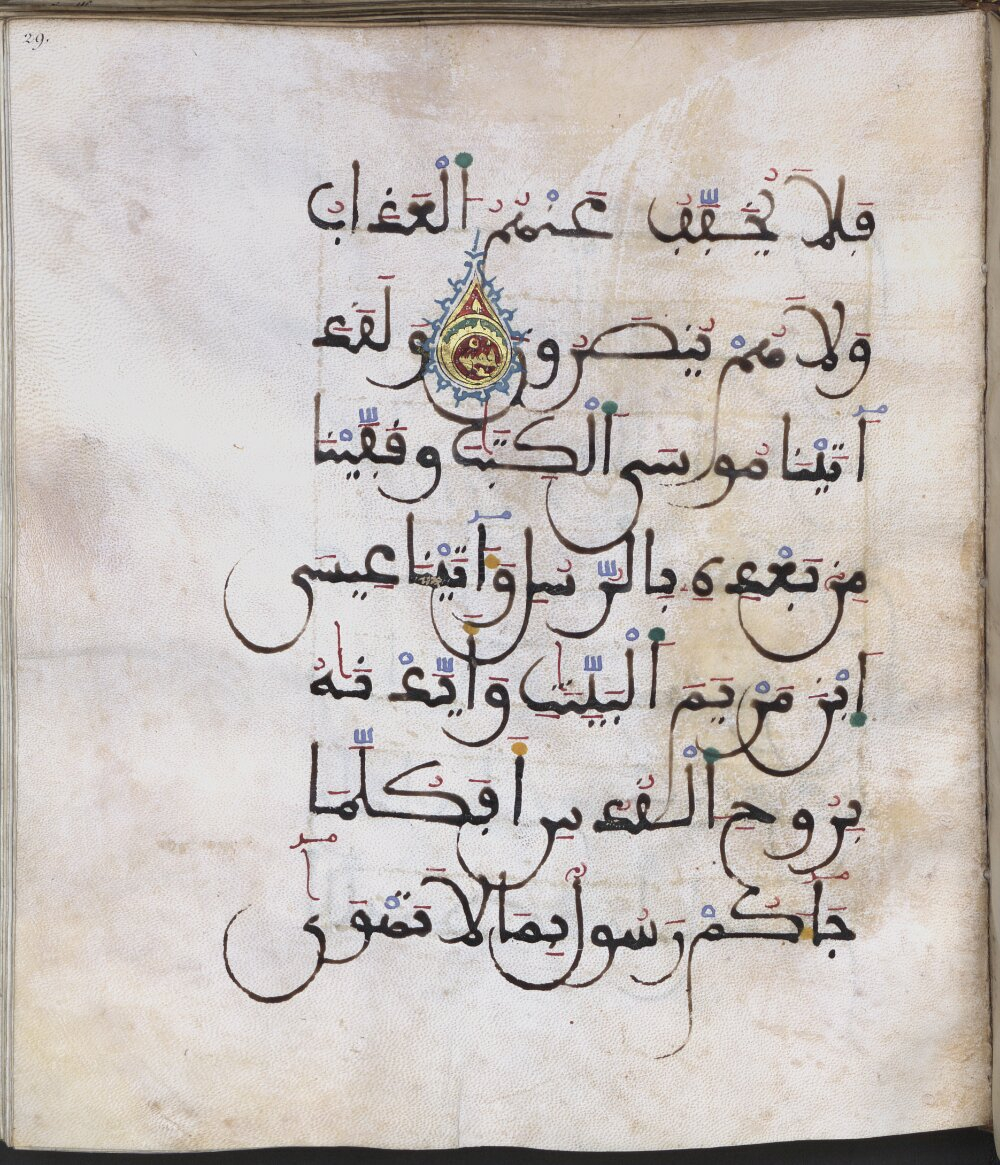 29.
فَلَا يُخَفَّفُ عَنْهُمُ اَ۬لْعَذَابُ
وَلَا هُمْ يُنصَرُونَ وَلَقَدَ
اٰتَيْنَا مُوسَي اَ۬لْكِتَٰبَ وَقَفَّيْنَا
مِنۢ بَعْدِهِۦ بِالرُّسُلِ وَءَاتَيْنَا عِيسَي
اَ۪بْنَ مَرْيَمَ اَ۬لْبَيِّنَٰتِ وَأَيَّدْنَٰهُ
بِرُوحِ اِ۬لْقُدُسِ أَفَكُلَّمَا
جَآءَكُمْ رَسُولُۢ بِمَا لَا تَهْو۪يٰٓ